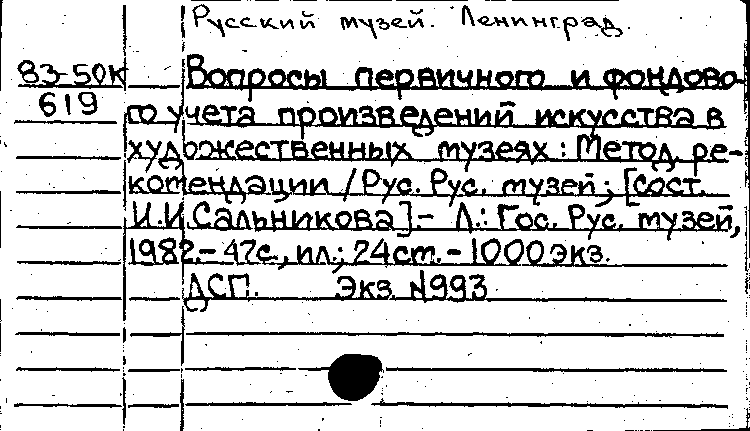 Русский музей. Ленинград.
83-50к Вопросы первичного и фондово-
619 го учета произведений искусства в
художественных музеях: Метод. ре-
комендации / Рус. Рус. музей; [сост.
И.И. Сальникова].- Л.: Гос. Рус. музей,
1982.- 47с., ил.; 24 ст. - 1000 экз.
ДСП. Экз. N993